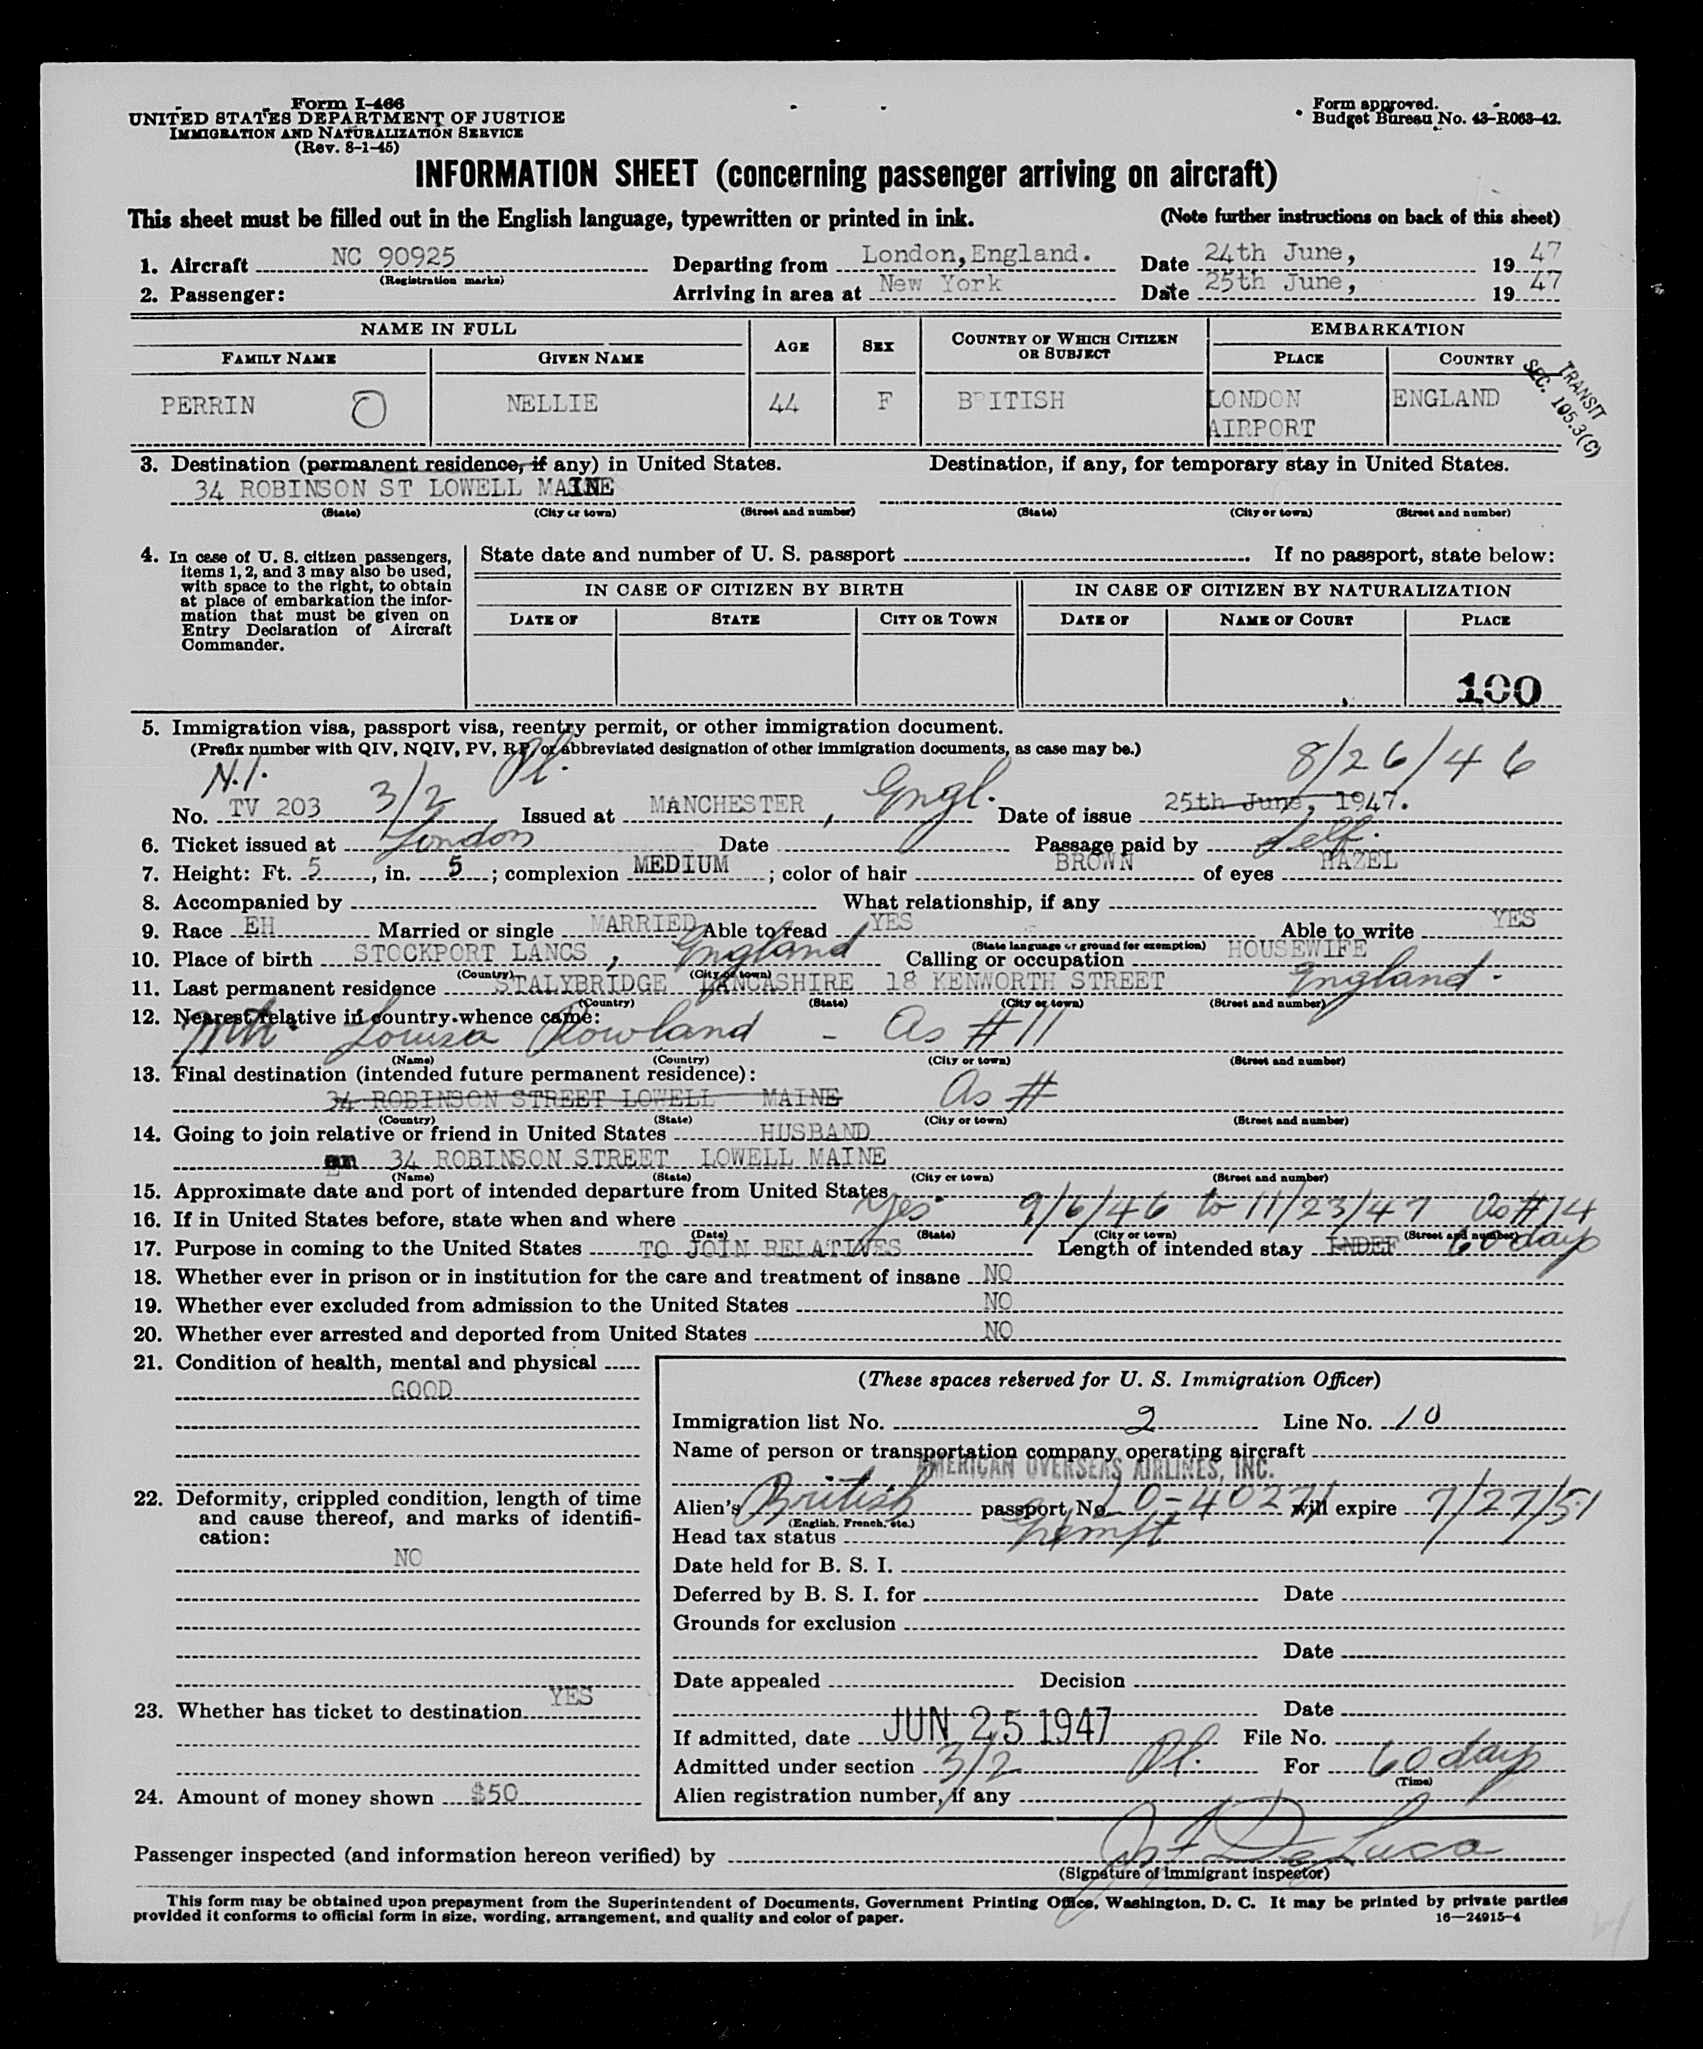 Form I-466
UNITED STATES DEPARTMENT OF JUSTICE
IMMIGRATION AND NATURALIZATION SERVICE
(Rev. 8-1-45)
Form approved.
Budget Bureau No. 43-R063-42.
INFORMATION SHEET (concerning passenger arriving on aircraft)
This sheet must be filled out in the English language, typewritten or printed in ink. (Note further instructions on back of this sheet)
1. Aircraft NC 90925 Departing from London, England. Date 24th June, 1947
(Registration marks)
2. Passenger: Arriving in area at New York Date 25th June, 1947
NAME IN FULL AGE SEX COUNTRY OF WHICH CITIZEN OR SUBJECT EMBARKATION
FAMILY NAME GIVEN NAME PLACE COUNTRY
TRANSIT
SEC. 105.3(C)
PERRIN O NELLIE 44 F BRITISH LONDON ENGLAND
AIRPORT
3. Destination (permanent residence, if any) in United States. Destination, if any, for temporary stay in United States.
34 ROBINSON ST LOWELL MAINE
(State) (City or town) (Street and number) (State) (City or town) (Street and number)
4. In case of U. S. citizen passengers, items 1, 2, and 3 may also be used, with space to the right, to obtain at place of embarkation the information that must be given on Entry Declaration of Aircraft Commander.
State date and number of U. S. passport If no passport, state below:
IN CASE OF CITIZEN BY BIRTH IN CASE OF CITIZEN BY NATURALIZATION
DATE OF STATE CITY OR TOWN DATE OF NAME OF COURT PLACE
100
5. Immigration visa, passport visa, reentry permit, or other immigration document.
(Prefix number with QIV, NQIV, PV, RP, or abbreviated designation of other immigration documents, as case may be.)
N.I. 3/2 Pl. Engl. 8/26/46
No. TV 203 Issued at MANCHESTER, Date of issue 25th June, 1947.
6. Ticket issued at London Date Passage paid by Self.
7. Height: Ft. 5, in. 5; complexion MEDIUM; color of hair BROWN of eyes HAZEL
8. Accompanied by What relationship, if any
9. Race EH Married or single MARRIED Able to read YES Able to write YES
(State language or ground for exemption)
10. Place of birth STOCKPORT LANCS, England Calling or occupation HOUSEWIFE
(Country) (City or town)
11. Last permanent residence STALYBRIDGE LANCASHIRE 18 KENWORTH STREET England.
(Country) (State) (City or town) (Street and number)
12. Nearest relative in country whence came:
Mth. Louisa Rowland - As #11
(Name) (Country) (City or town) (Street and number)
13. Final destination (intended future permanent residence):
34 ROBINSON STREET LOWELL MAINE As #
(Country) (State) (City or town) (Street and number)
14. Going to join relative or friend in United States HUSBAND
34 ROBINSON STREET LOWELL MAINE
(Name) (State) (City or town) (Street and number)
15. Approximate date and port of intended departure from United States
16. If in United States before, state when and where Yes. 9/6/46 to 11/23/47 As #14
(Date) (State) (City or town) (Street and number)
17. Purpose in coming to the United States TO JOIN RELATIVES Length of intended stay INDEF 60 days
18. Whether ever in prison or in institution for the care and treatment of insane NO
19. Whether ever excluded from admission to the United States NO
20. Whether ever arrested and deported from United States NO
21. Condition of health, mental and physical
GOOD
22. Deformity, crippled condition, length of time and cause thereof, and marks of identification:
NO
23. Whether has ticket to destination YES
24. Amount of money shown $50
(These spaces reserved for U. S. Immigration Officer)
Immigration list No. 2 Line No. 10
Name of person or transportation company operating aircraft
AMERICAN OVERSEAS AIRLINES, INC.
Alien's British passport No. LO-40271 will expire 7/27/51
(English, French, etc.)
Head tax status Exempt
Date held for B. S. I.
Deferred by B. S. I. for Date
Grounds for exclusion
Date
Date appealed Decision
Date
If admitted, date JUN 25 1947 File No.
Admitted under section 3/2 Pl. For 60 days
(Time)
Alien registration number, if any
Passenger inspected (and information hereon verified) by
(Signature of immigrant inspector)
This form may be obtained upon prepayment from the Superintendent of Documents, Government Printing Office, Washington, D. C. It may be printed by private parties
provided it conforms to official form in size, wording, arrangement, and quality and color of paper. 16—24915-4